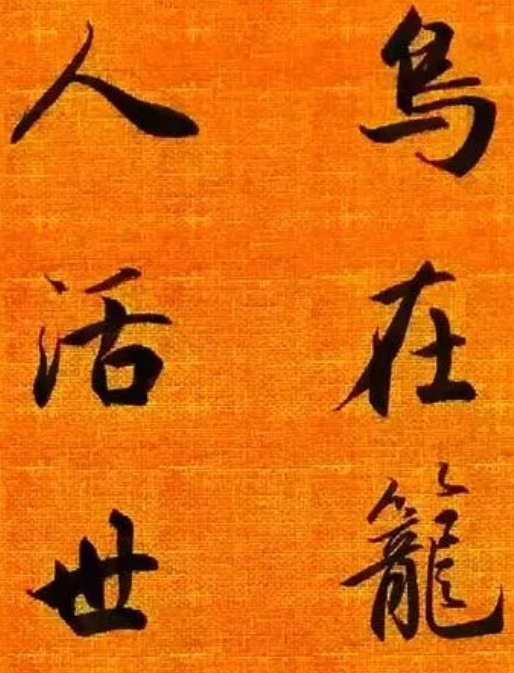 鳥在籠
人活世